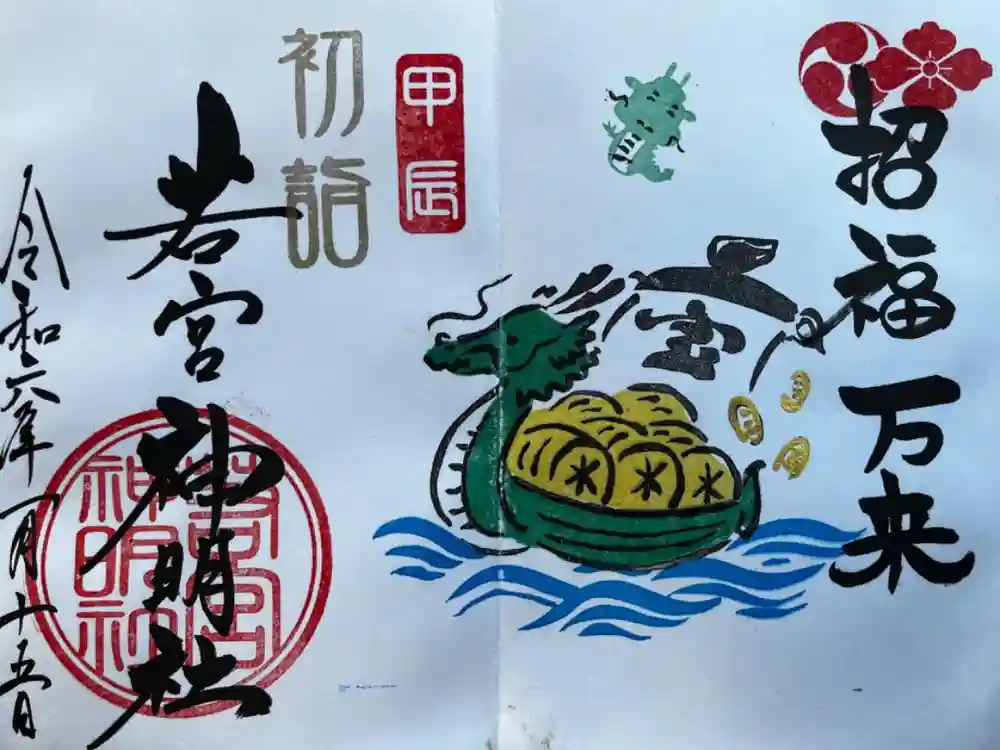 招福万来
宝
甲辰
初詣
若宮神明社
若宮
神明社
令和六年一月十五日